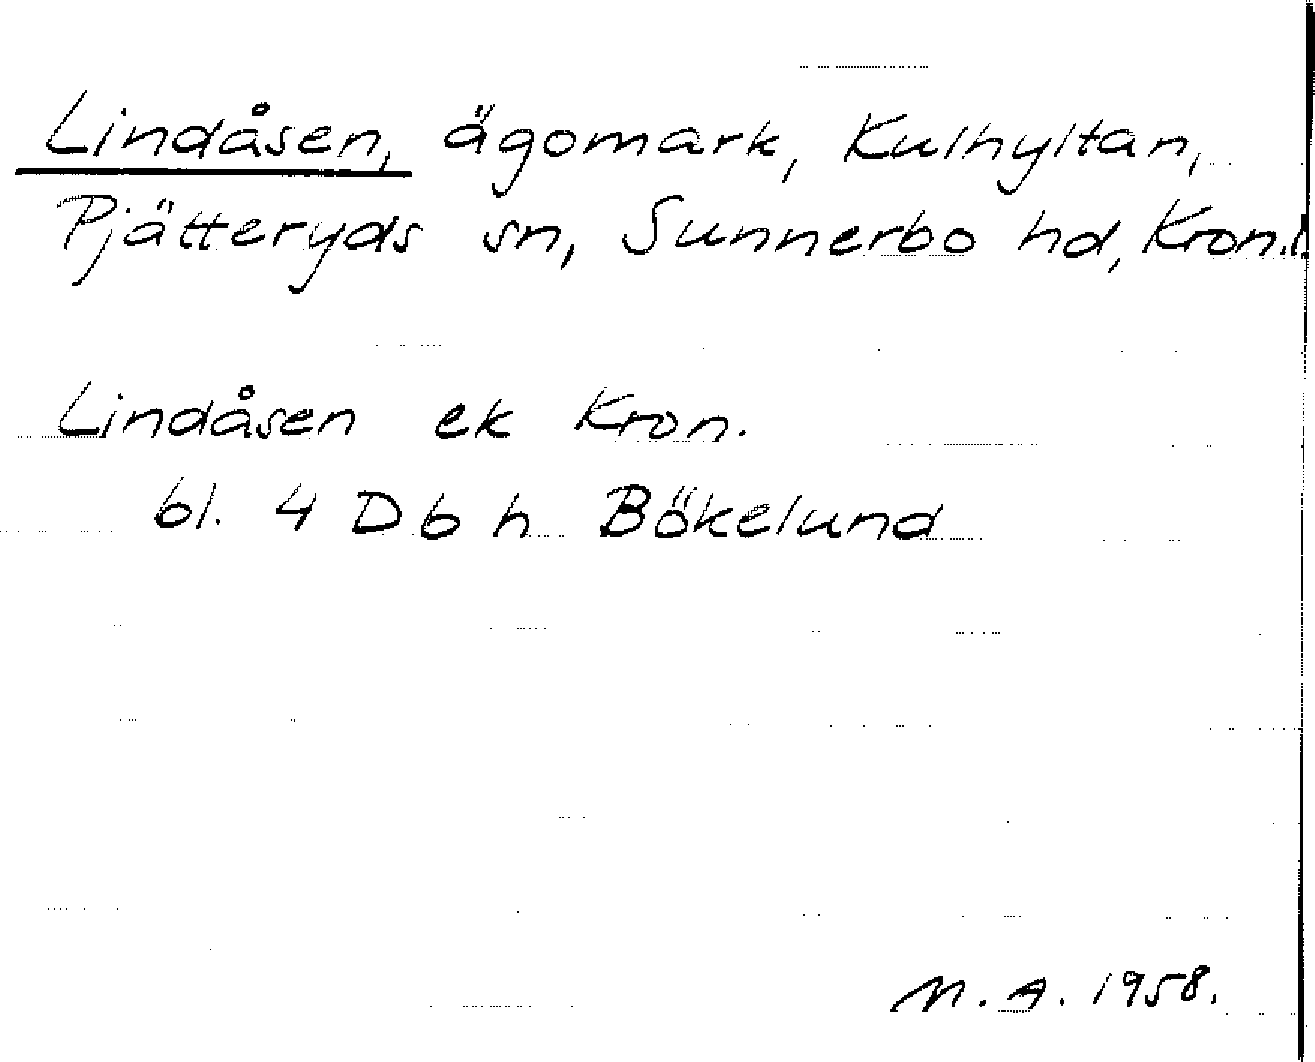 Lindåsen, ägomark, Kulhyltan,
Pjätteryds sn, Sunnerbo hd, Kron.l.
Lindåsen ek Kron.
bl. 4 D b h Bökelund
N. A. 1958.